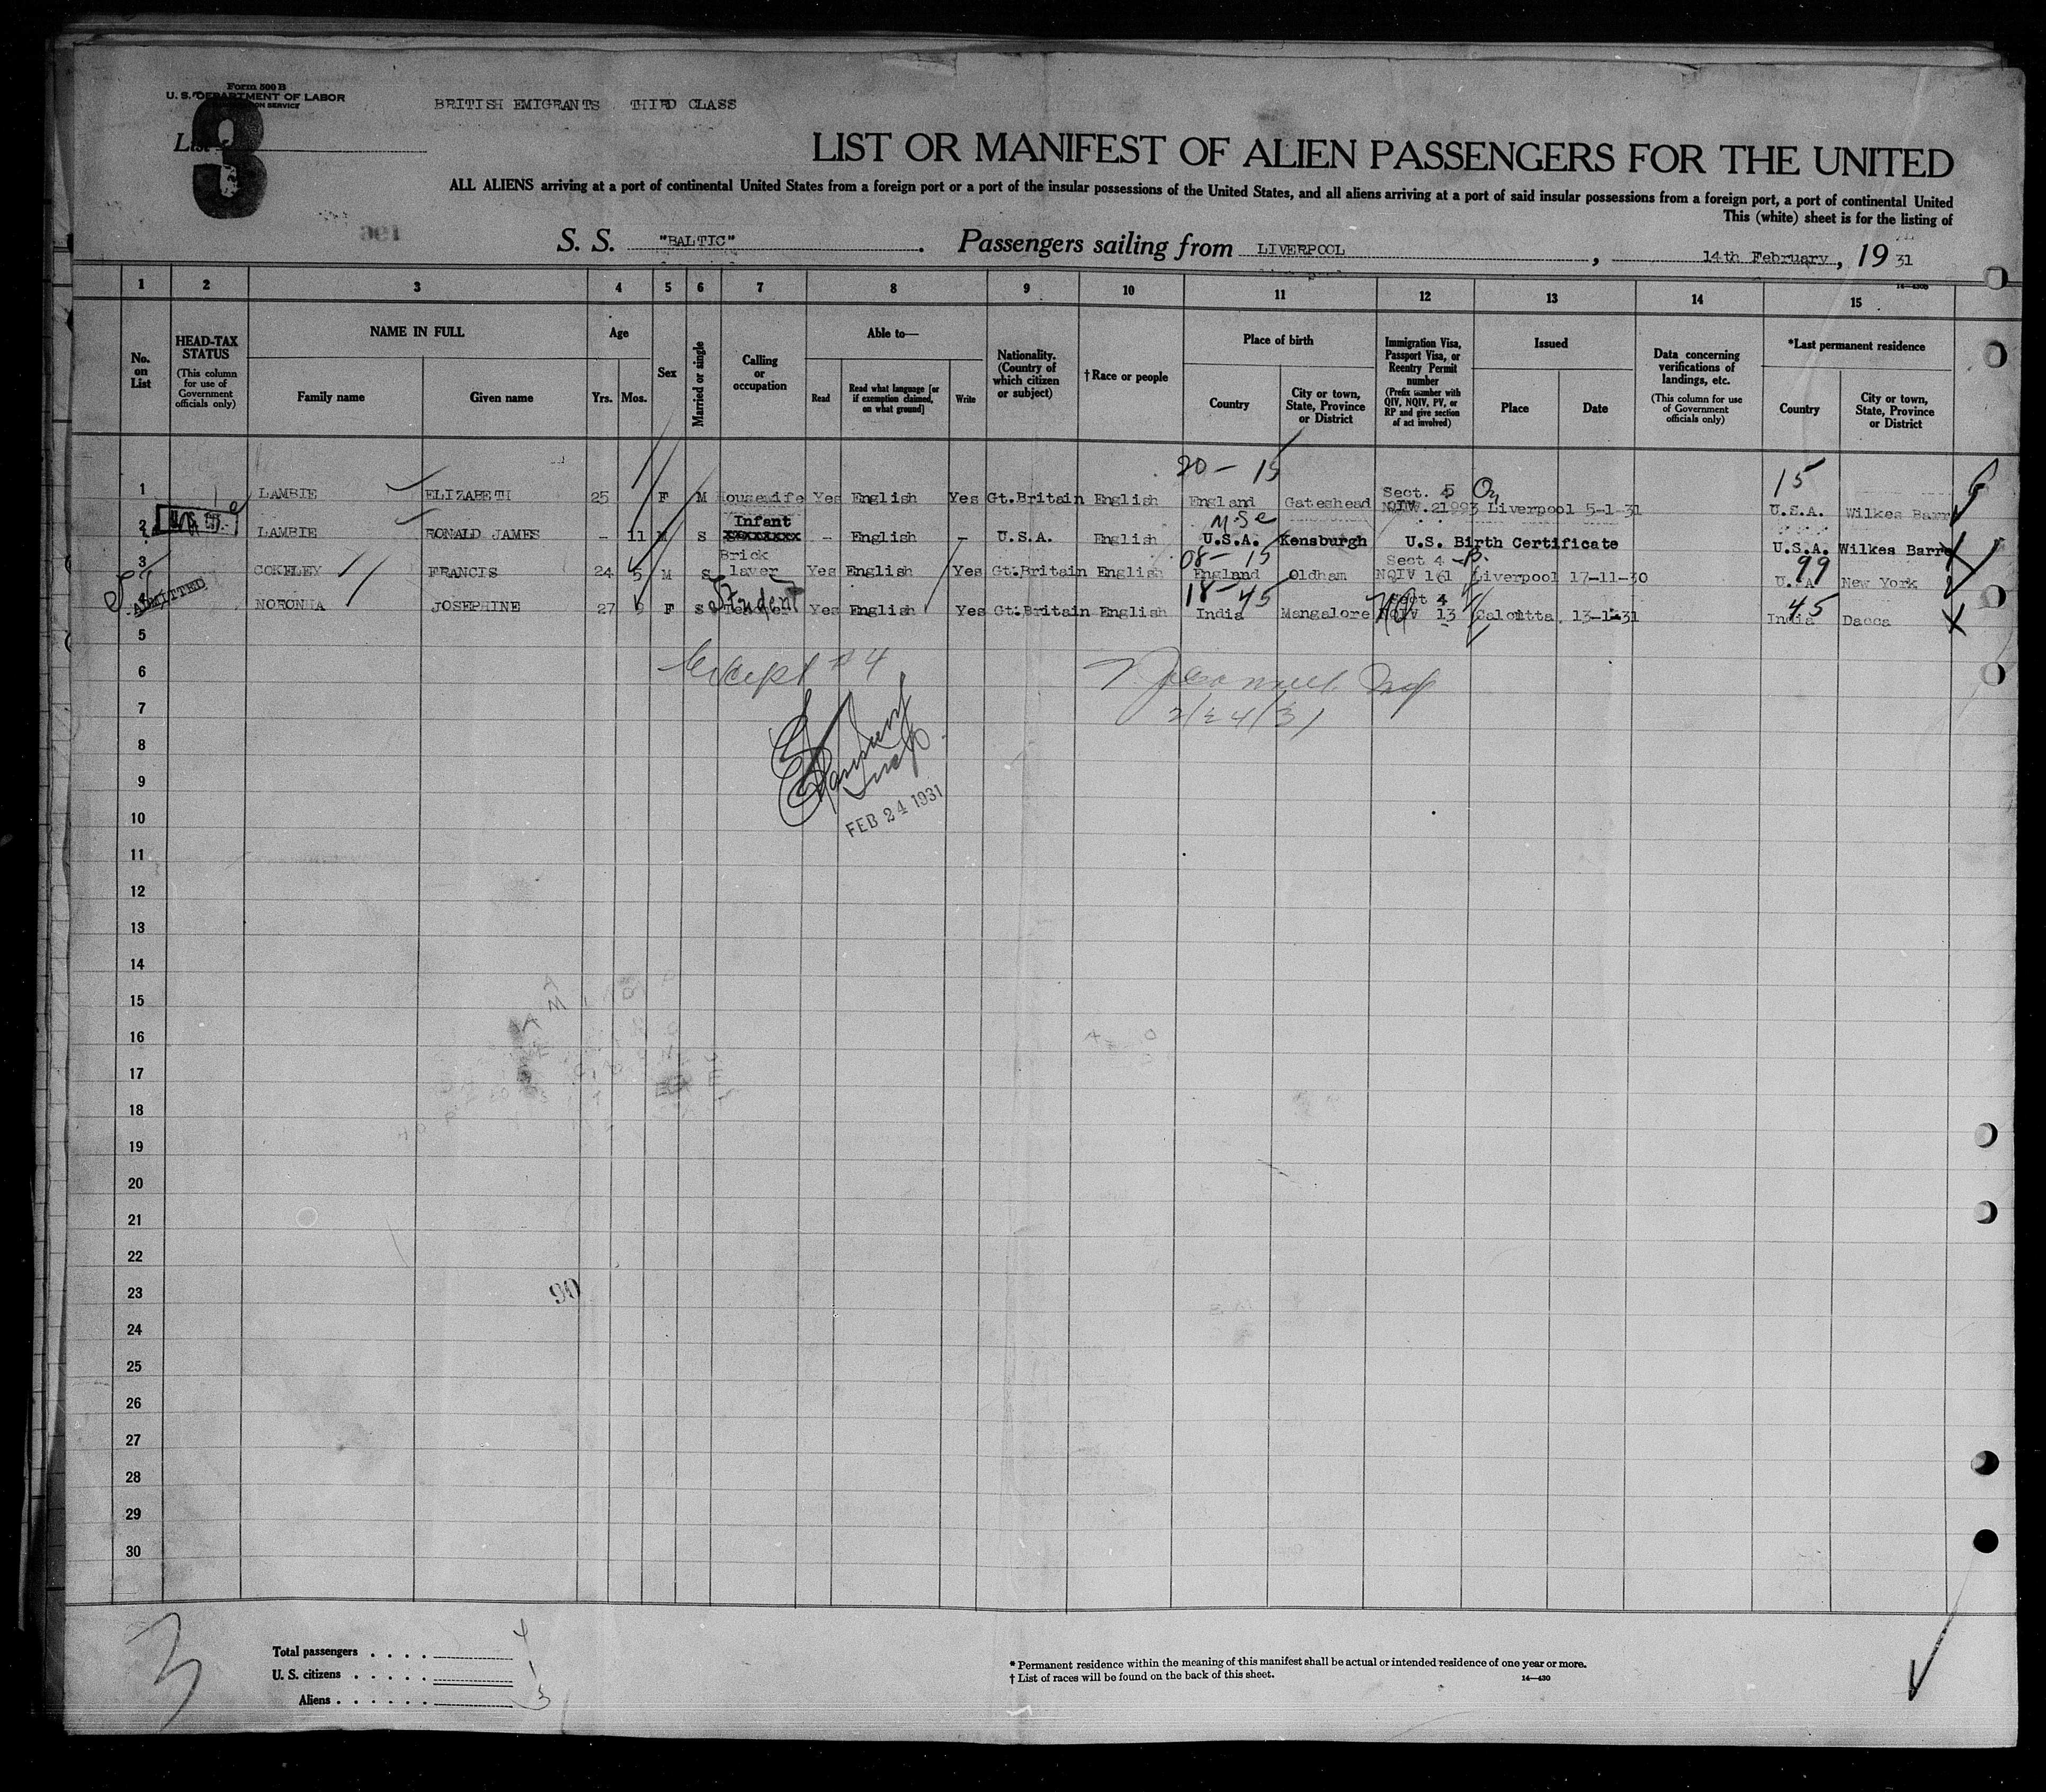 Form 500 B
U. S. DEPARTMENT OF LABOR
BRITISH EMIGRANTS THIRD CLASS
List
3
LIST OR MANIFEST OF ALIEN PASSENGERS FOR THE UNITED
ALL ALIENS arriving at a port of continental United States from a foreign port or a port of the insular possessions of the United States, and all aliens arriving at a port of said insular possessions from a foreign port, a port of continental United
This (white) sheet is for the listing of
S. S. "BALTIC". Passengers sailing from LIVERPOOL, 14th February, 19 31
1 2 3 4 5 6 7 8 9 10 11 12 13 14 15
No. on List
HEAD-TAX STATUS (This column for use of Government officials only)
NAME IN FULL
Family name Given name
Age
Yrs. Mos.
Sex
Married or single
Calling or occupation
Able to—
Read Read what language [or if exemption claimed, on what ground] Write
Nationality. (Country of which citizen or subject)
†Race or people
Place of birth
Country City or town, State, Province or District
Immigration Visa, Passport Visa, or Reentry Permit number (Prefix number with QIV, NQIV, PV, or RP and give section of act involved)
Issued
Place Date
Data concerning verifications of landings, etc. (This column for use of Government officials only)
*Last permanent residence
Country City or town, State, Province or District
20 — 15 15
1 LAMBIE ELIZABETH 25 F M Housewife Yes English Yes Gt.Britain English England Gateshead Sect. 5 NQIV.21993 Liverpool 5-1-31 U.S.A. Wilkes Barre
2 LAMBIE RONALD JAMES - 11 M S Infant - English - U.S.A. English U.S.A. Kensburgh U.S. Birth Certificate U.S.A. Wilkes Barre
08 — 15 99
3 COKELEY FRANCIS 24 5 M S Brick layer Yes English Yes Gt.Britain English England Oldham Sect 4 NQIV 161 Liverpool 17-11-30 U.S.A. New York
18 — 45 45
ADMITTED
4 NORONHA JOSEPHINE 27 9 F S Student Yes English Yes Gt.Britain English India Mangalore Sect 4 NQIV 13 Calcutta 13-1-31 India Dacca
5
6
Except #4
7
2/24/31
8
9
10
FEB 24 1931
11
12
13
14
15
16
17
18
19
20
21
22
23
90
24
25
26
27
28
29
30
3
Total passengers . . . . 4
U. S. citizens . . . . . 1
Aliens . . . . . . 3
* Permanent residence within the meaning of this manifest shall be actual or intended residence of one year or more.
† List of races will be found on the back of this sheet.
14—430